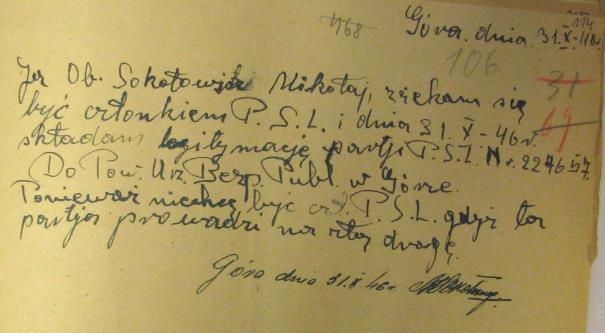 468
Góra. dnia 31.X-46r.
114
106
31
69
Ja Ob. Sokołowski Mikołaj, zżekam się
być członkiem P.S.L. i dnia 31.X-46r.
składam legitymację partji P.S.L. Nr. 227657.
Do Pow. Urz. Bezp. Publ. w Górze.
Ponieważ niechcę być czł. P.S.L. gdyż ta
partja prowadzi na złą drogę.
Góra dnia 31.X 46r.